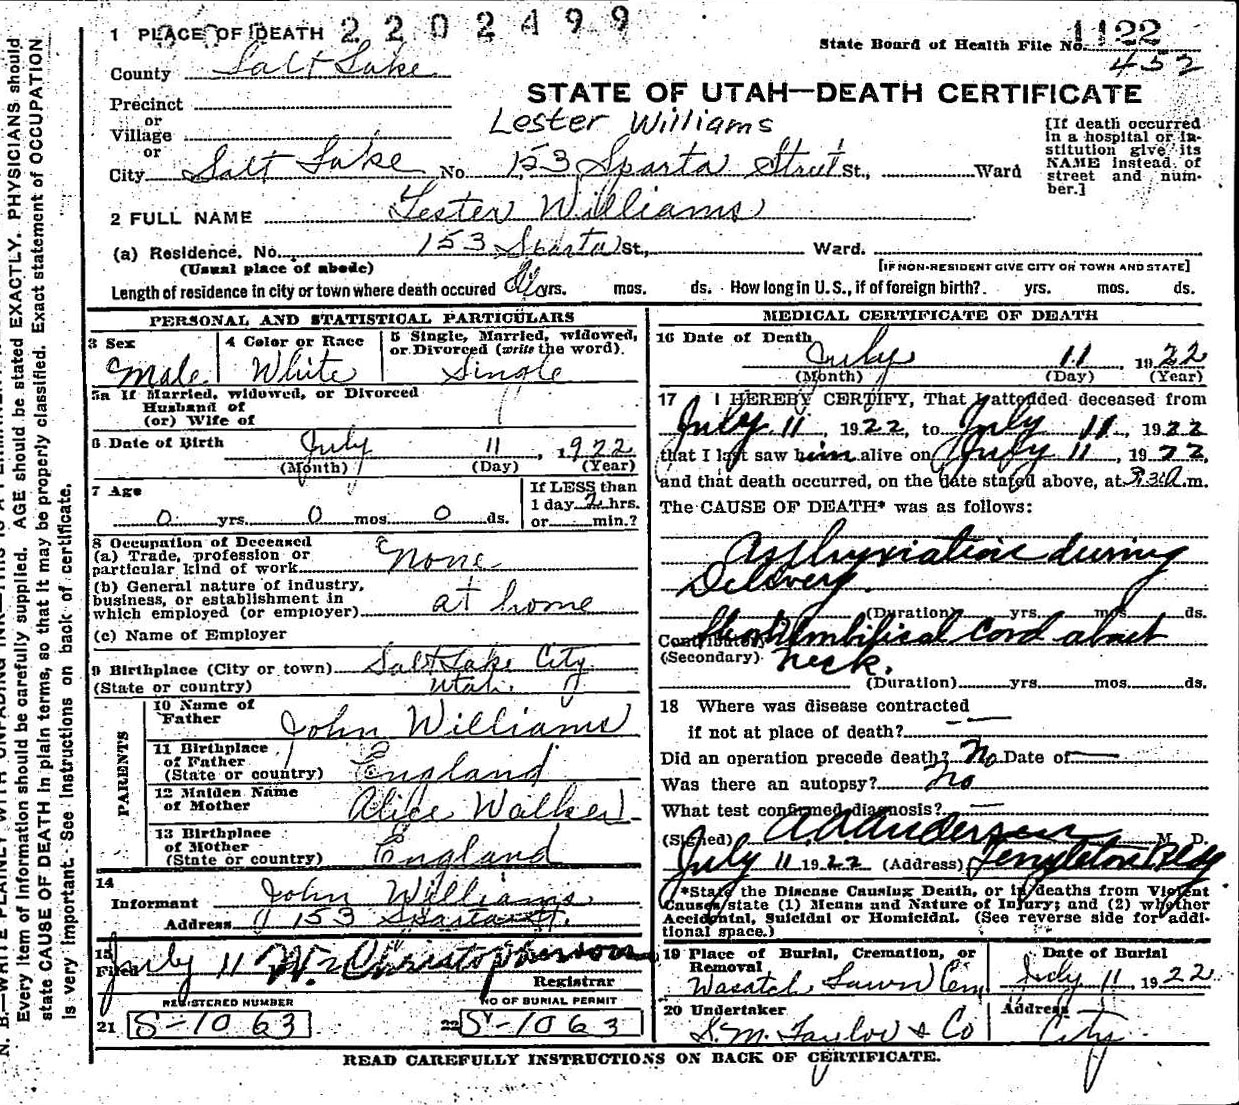 1 PLACE OF DEATH 2202499
State Board of Health File No. 1122
452
County Salt Lake
STATE OF UTAH—DEATH CERTIFICATE
Precinct
or
Village
or
Lester Williams
[If death occurred in a hospital or institution give its NAME instead of street and number.]
City Salt Lake No. 153 Sparta Street St., Ward
2 FULL NAME Lester Williams
(a) Residence. No. 153 Sparta St., Ward.
(Usual place of abode) [IF NON-RESIDENT GIVE CITY OR TOWN AND STATE]
Length of residence in city or town where death occured yrs. mos. ds. How long in U.S., if of foreign birth? yrs. mos. ds.
PERSONAL AND STATISTICAL PARTICULARS
3 Sex
Male
4 Color or Race
White
5 Single, Married, widowed,
or Divorced (write the word).
Single
5a If Married, widowed, or Divorced
Husband of
(or) Wife of
6 Date of Birth July 11, 1922
(Month) (Day) (Year)
7 Age
0 yrs. 0 mos. 0 ds.
If LESS than
1 day 2 hrs.
or min.?
8 Occupation of Deceased
(a) Trade, profession or
particular kind of work None
(b) General nature of industry,
business, or establishment in
which employed (or employer) at home
(c) Name of Employer
9 Birthplace (City or town) Salt Lake City
(State or country) Utah.
PARENTS
10 Name of
Father John Williams
11 Birthplace
of Father
(State or country) England
12 Maiden Name
of Mother Alice Walker
13 Birthplace
of Mother
(State or country) England
14
Informant John Williams
Address 153 Sparta St.
15
Filed July 11 W. Christopherson
Registrar
REGISTERED NUMBER
21 S-1063
NO OF BURIAL PERMIT
22 S-1063
MEDICAL CERTIFICATE OF DEATH
16 Date of Death
July 11, 1922
(Month) (Day) (Year)
17 I HEREBY CERTIFY, That I attended deceased from
July 11, 1922, to July 11, 1922
that I last saw him alive on July 11, 1922,
and that death occurred, on the date stated above, at 3:30 A.m.
The CAUSE OF DEATH* was as follows:
Asphyxiation during
Delivery.
(Duration) yrs. mos. ds.
Contributory Short Umbilical Cord about
(Secondary) neck.
(Duration) yrs. mos. ds.
18 Where was disease contracted
if not at place of death?
Did an operation precede death? No Date of
Was there an autopsy? No
What test confirmed diagnosis?
(Signed) A. O. Anderson M. D.
July 11 1922 (Address) Templeton Bldg
*State the Disease Causing Death, or in deaths from Violent
Causes state (1) Means and Nature of Injury; and (2) whether
Accidental, Suicidal or Homicidal. (See reverse side for addi-
tional space.)
19 Place of Burial, Cremation, or
Removal
Wasatch Lawn Cem
Date of Burial
July 11 1922
20 Undertaker
S. M. Taylor & Co
Address
City
READ CAREFULLY INSTRUCTIONS ON BACK OF CERTIFICATE.
Every item of information should be carefully supplied. AGE should be stated EXACTLY. PHYSICIANS should
state CAUSE OF DEATH in plain terms, so that it may be properly classified. Exact statement of OCCUPATION
is very important. See instructions on back of certificate.